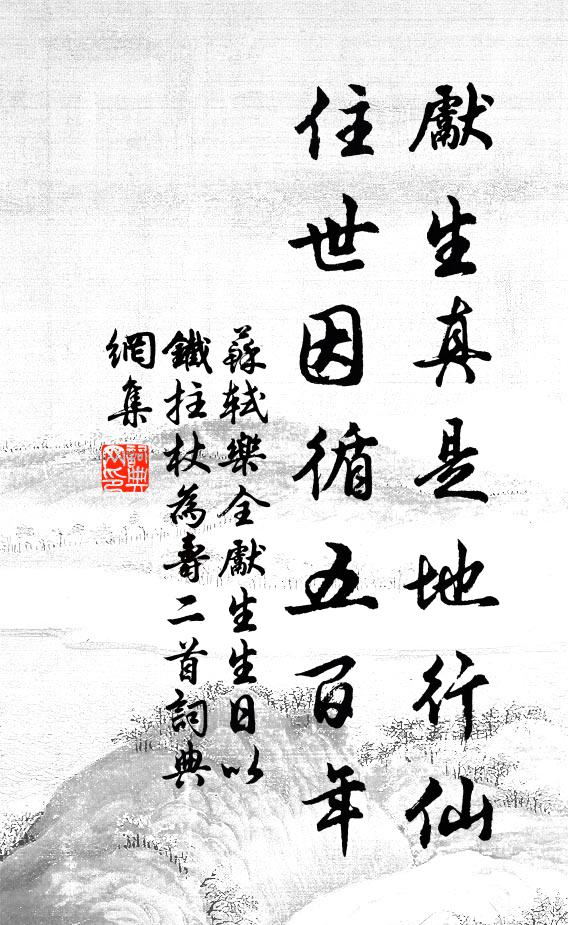 獻生真是地行仙
住世因循五百年
蘇軾樂全獻生生日以
鐵拄杖為壽二首詞典
網集
詞典
网印